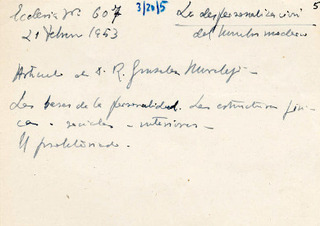 Ecclesia nº 607
3/20/5
La despersonalización
5
21 Febrero 1953
del hombre moderno
Artículo de D. R. Gonzalez Moralejo -
Las bases de la personalidad. Las estructuras físi-
cas - sociales - interiores -
El proletariado -